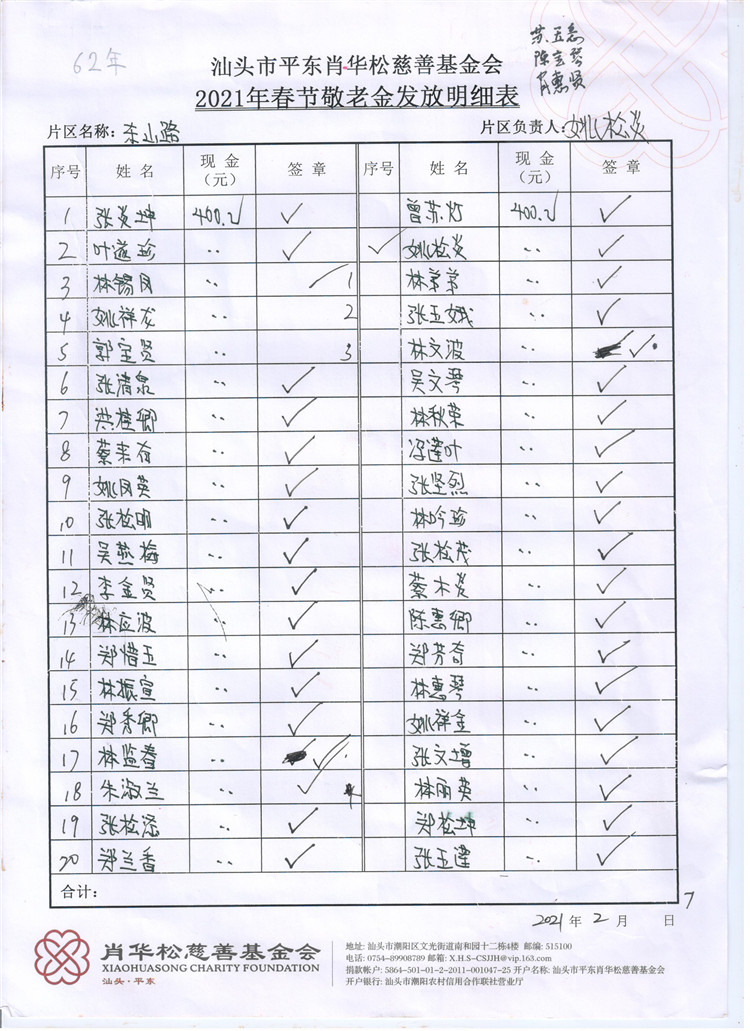 62年
苏玉惠
陈玄琴
肖惠贤
汕头市平东肖华松慈善基金会
2021年春节敬老金发放明细表
片区名称：东山路 片区负责人：姚松炎
序号 姓名 现金（元） 签章 序号 姓名 现金（元） 签章
1 张炎坤 400元 ✓ 曾苏灯 400元 ✓
2 叶莲珍 〃 ✓ ✓ 姚松炎 〃 ✓
3 林锡凤 〃 ✓ 1 林弟弟 〃 ✓
4 姚祥龙 〃 2 张玉娥 〃 ✓
5 郭宝贤 〃 3 林文波 〃 ✓
6 张清泉 〃 ✓ 吴文琴 〃 ✓
7 洪桂卿 〃 ✓ 林秋荣 〃 ✓
8 蔡来有 〃 ✓ 冯莲叶 〃 ✓
9 姚凤英 〃 ✓ 张坚烈 〃 ✓
10 张松明 〃 ✓ 林吟珍 〃 ✓
11 吴燕梅 〃 ✓ 张松茂 〃 ✓
12 李金贤 〃 ✓ 蔡木炎 〃 ✓
13 林应波 〃 ✓ 陈惠卿 〃 ✓
14 郑惜玉 〃 ✓ 郑芳奇 〃 ✓
15 林振宣 〃 ✓ 林惠琴 〃 ✓
16 郑秀卿 〃 ✓ 姚祥金 〃 ✓
17 林监春 〃 ✓ 张文增 〃 ✓
18 朱淑兰 〃 ✓ 林丽英 〃 ✓
19 张松添 〃 ✓ 郑松坤 〃 ✓
20 郑兰香 〃 ✓ 张玉莲 〃 ✓
合计：
2021年2月7日
肖华松慈善基金会
XIAOHUASONG CHARITY FOUNDATION
汕头·平东
地址: 汕头市潮阳区文光街道南和园十二栋4楼 邮编: 515100
电话: 0754-89908789 邮箱: X.H.S-CSJJH@vip.163.com
捐款帐户: 5864-501-01-2-2011-001047-25 开户名称: 汕头市平东肖华松慈善基金会
开户银行: 汕头市潮阳农村信用合作联社营业厅